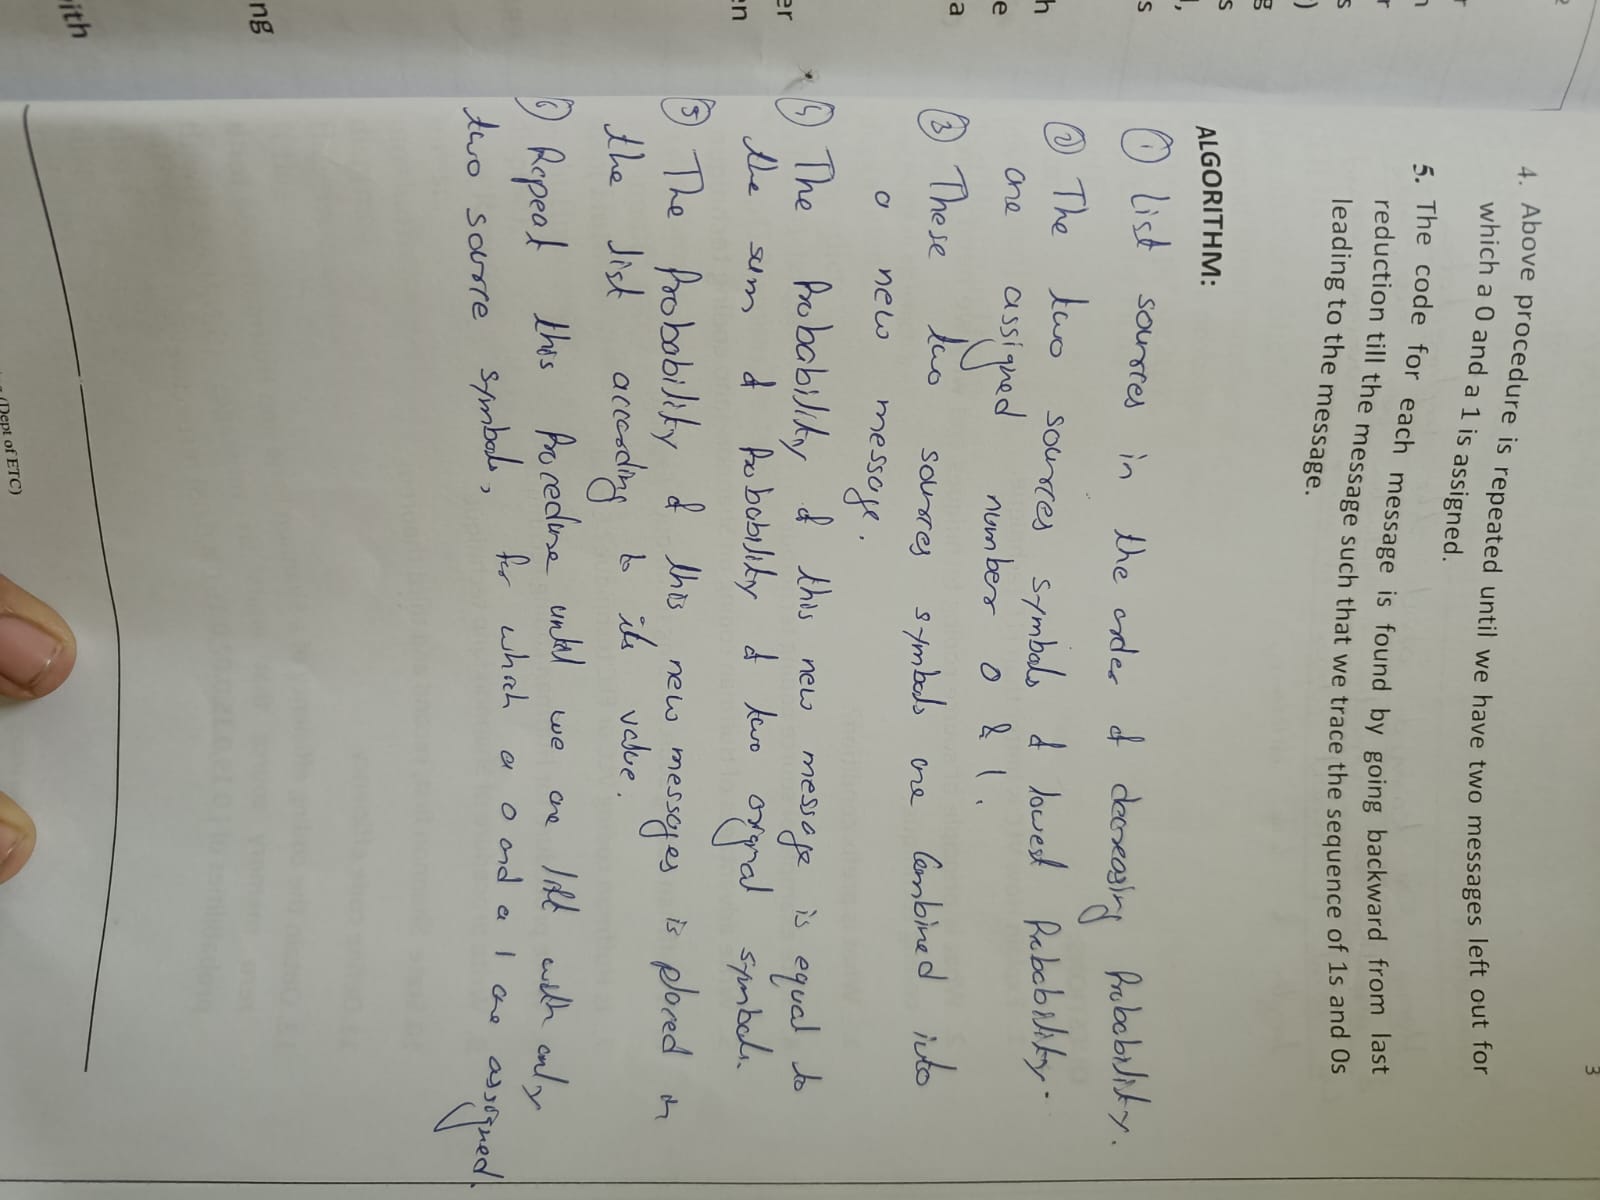 3
4. Above procedure is repeated until we have two messages left out for
which a 0 and a 1 is assigned.
5. The code for each message is found by going backward from last
reduction till the message such that we trace the sequence of 1s and 0s
leading to the message.
ALGORITHM:
① List sources in the order of decreasing Probability.
② The two sources symbols of lowest Probability.
are assigned number 0 & 1.
③ These two sources symbols are Combined into
a new message.
④ The Probability of this new message is equal to
the sum of Probability of two original symbols.
⑤ The Probability of this new messages is placed in
the list according to its value.
⑥ Repeat this Procedure until we are left with only
two source symbols, for which a 0 and a 1 are assigned.
(Dept of ETC)
er
en
ng
ith